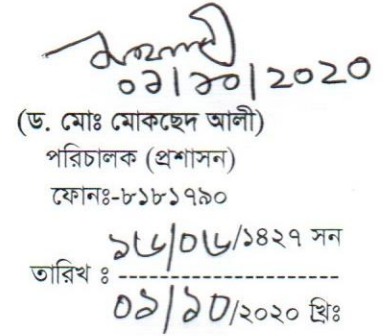 ০১/১০/2020
(ড. মোঃ মোকছেদ আলী)
পরিচালক (প্রশাসন)
ফোনঃ-৮১৮১৭৯০
১৬/০৬/১৪২৭ সন
তারিখ ঃ ------------------------
০১/১০/২০২০ খ্রিঃ